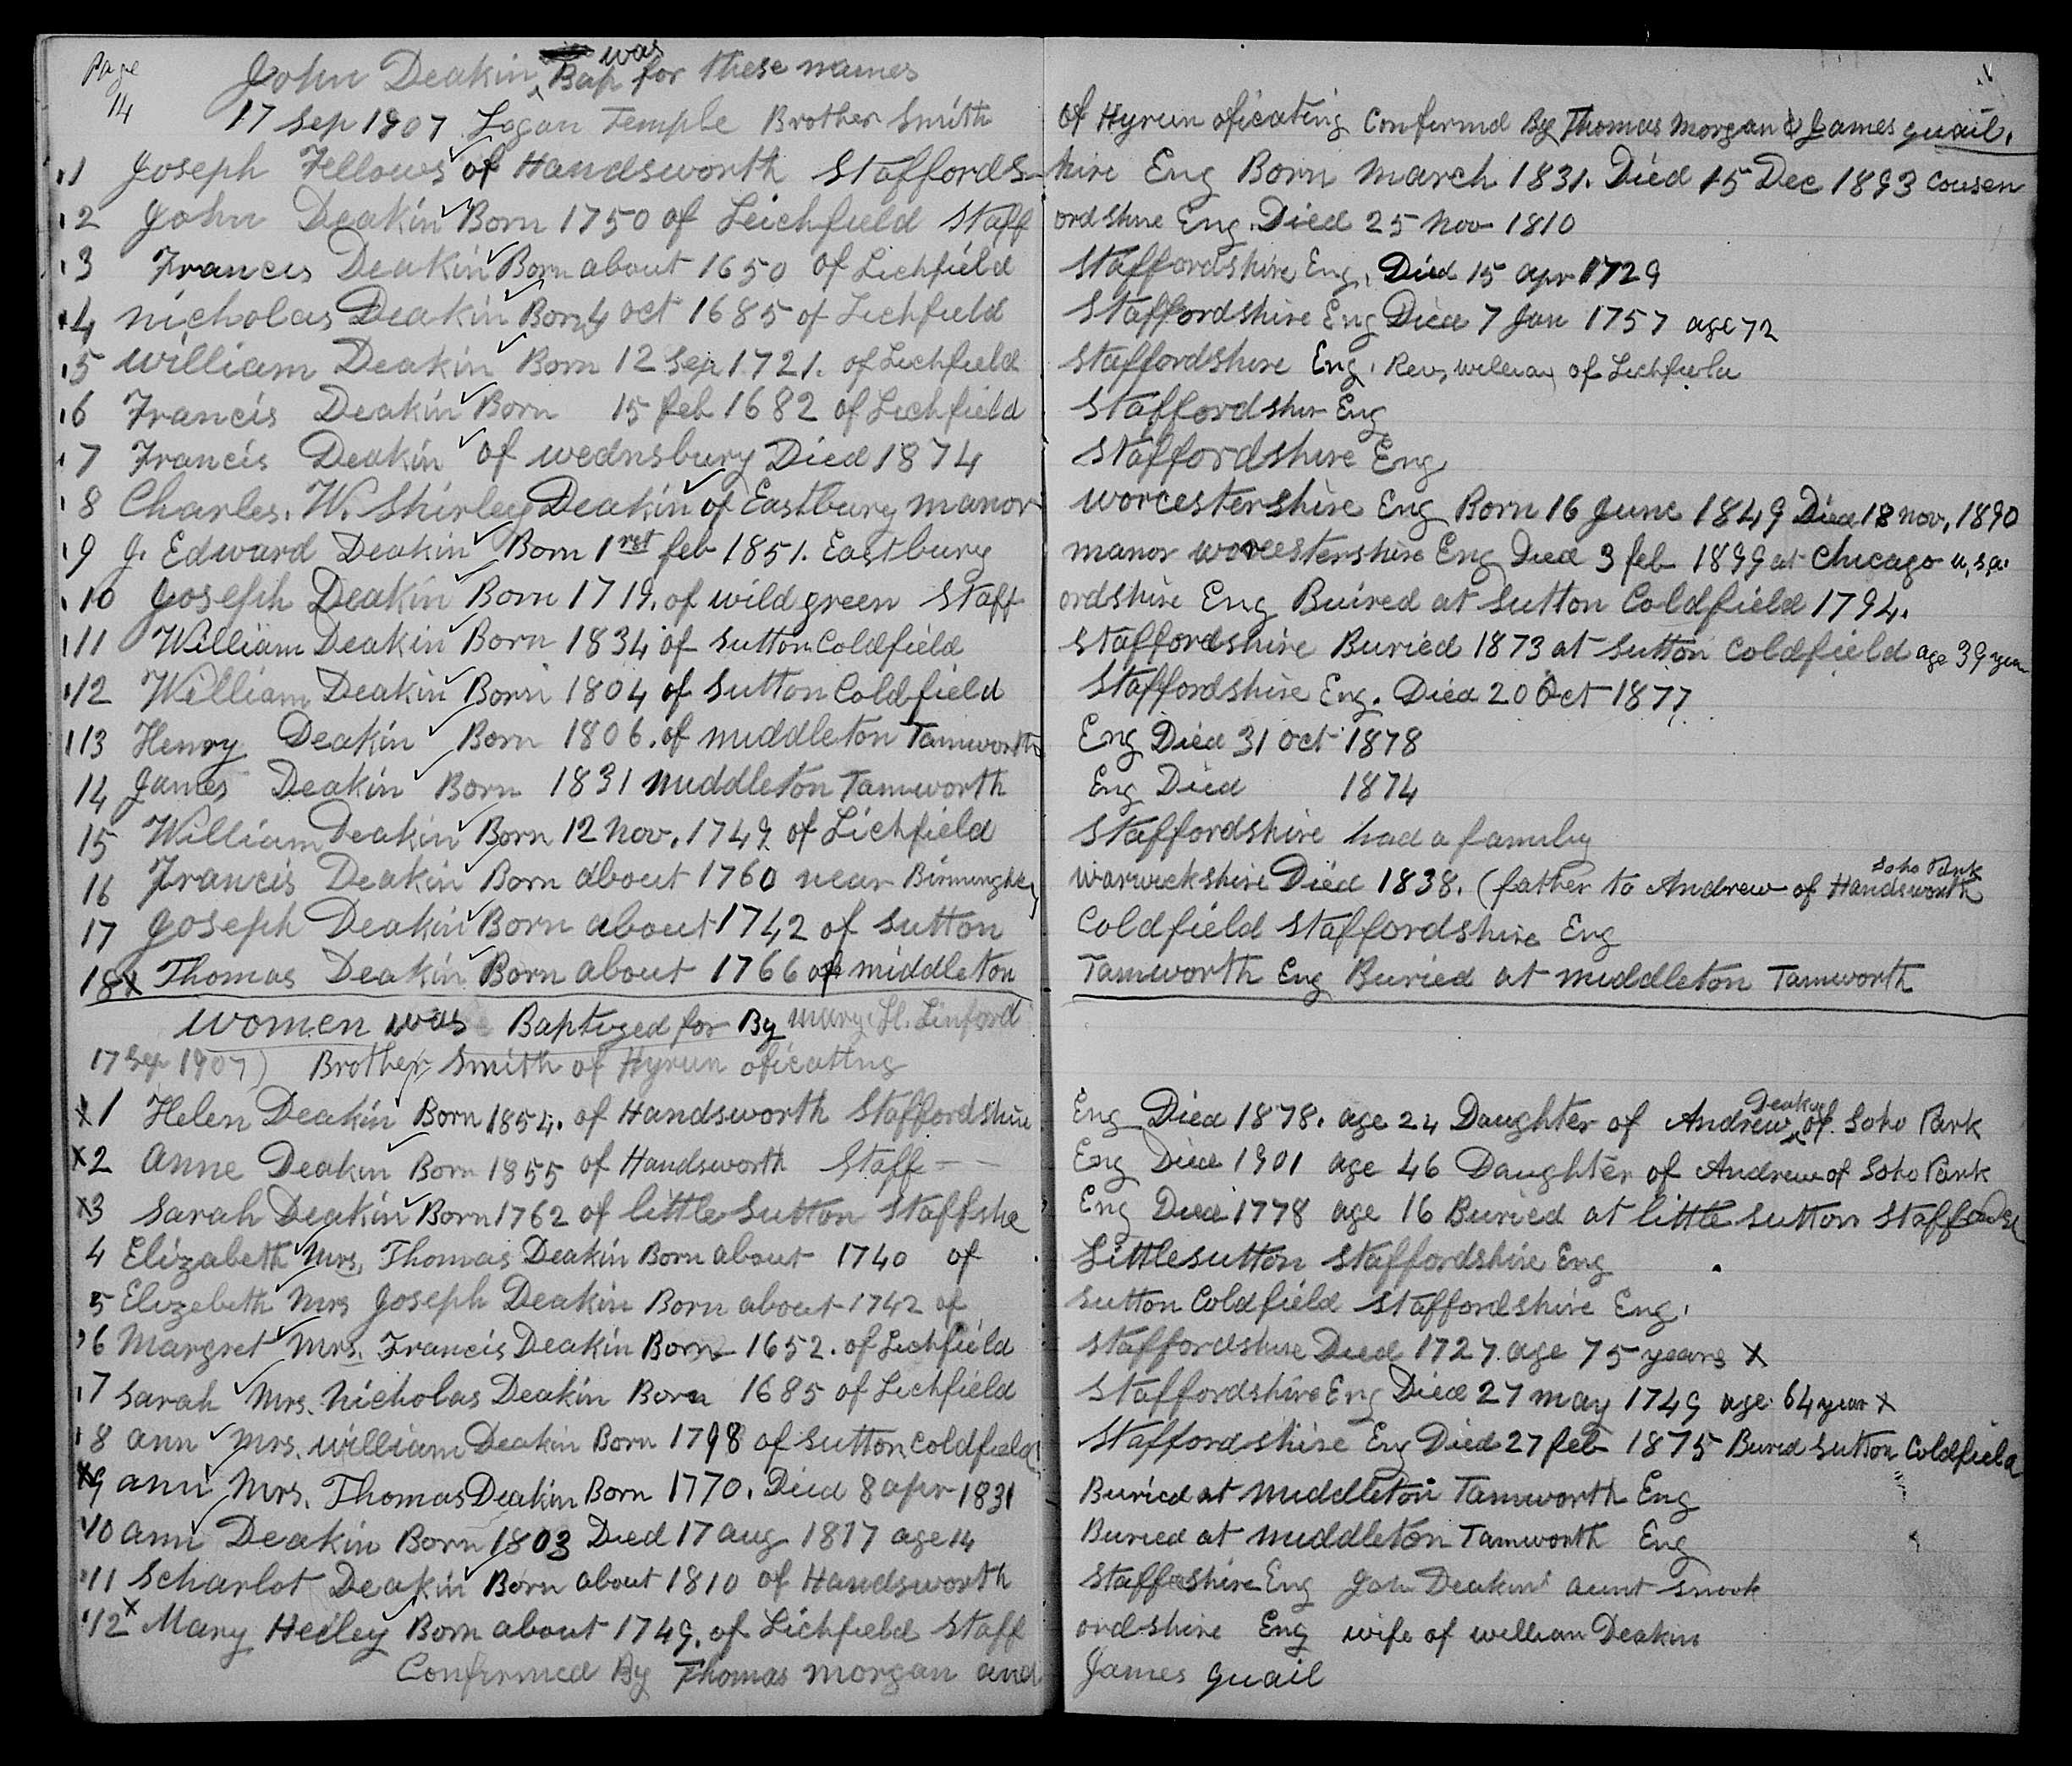 Page 14
John Deakin was Bap for these names
17 Sep 1907 Logan Temple Brother Smith of Hyrum oficating Confermd By Thomas Morgan & James quail.
1 Joseph Fellows of Handsworth Staffordshire Eng Born March 1831. Died 15 Dec 1893 Cousen
2 John Deakin Born 1750 of Leichfield Staffordshire Eng. Died 25 Nov 1810
3 Francis Deakin Born about 1650 of Lichfield Staffordshire Eng. Died 15 apr 1729
4 Nicholas Deakin Born 4 oct 1685 of Lichfield Staffordshire Eng Died 7 Jan 1757 age 72
5 William Deakin Born 12 Sep 1721. of Lichfield Staffordshire Eng. Rev, william of Lichfield
6 Francis Deakin Born 15 feb 1682 of Lichfield Staffordshir Eng
7 Francis Deakin of wednsbury Died 1874 Staffordshire Eng
8 Charles. W. Shirley Deakin of Eastbury manor worcestershire Eng Born 16 June 1849 Died 18 nov, 1890
9 J. Edward Deakin Born 1rst feb 1851. Eastbury manor worcestershire Eng Died 3 feb 1899 at Chicago u,s,a.
10 Joseph Deakin Born 1719. of wild green Staffordshire Eng Buired at Sutton Coldfield 1794.
11 William Deakin Born 1834 of Sutton Coldfield Staffordshire Buried 1873 at Sutton Coldfield age 39 year
12 William Deakin Born 1804 of Sutton Coldfield Staffordshire Eng. Died 20 Oct 1877
113 Henry Deakin Born 1806. of middleton Tamworth Eng Died 31 oct 1878
14 James Deakin Born 1831 middleton Tamworth Eng Died 1874
15 William Deakin Born 12 Nov. 1749 of Lichfield Staffordshire had a family
16 Francis Deakin Born about 1760 near Birmingham warwickshire Died 1838. (father to Andrew of Handsworth Soho Park
17 Joseph Deakin Born about 1742 of Sutton Coldfield Staffordshire Eng
18x Thomas Deakin Born about 1766 of middleton Tamworth Eng Buried at middleton Tamworth
women was Baptized for By mary H. Linford
17 Sep 1907) Brother Smith of Hyrum oficating
x1 Helen Deakin Born 1854. of Handsworth Staffordshire Eng Died 1878. age 24 Daughter of Andrew Deakin of Soho Park
x2 Anne Deakin Born 1855 of Handsworth Staff — Eng Died 1901 age 46 Daughter of Andrew of Soho Park
x3 Sarah Deakin Born 1762 of little Sutton Staffshe Eng Died 1778 age 16 Buried at little Sutton
4 Elizabeth Mrs. Thomas Deakin Born about 1740 of Littlesutton Staffordshire Eng
5 Elizebeth Mrs Joseph Deakin Born about 1742 of Sutton Coldfield Staffordshire Eng.
6 Margret Mrs. Francis Deakin Born 1652. of Lichfield Staffordshire Died 1727 age 75 years x
7 Sarah Mrs. Nicholas Deakin Born 1685 of Lichfield Staffordshire Eng Died 27 may 1749 age 64 year x
8 ann Mrs. william Deakin Born 1798 of Sutton Coldfield Staffordshire Eng Died 27 feb 1875 Bured Sutton Coldfield
x9 ann Mrs. Thomas Deakin Born 1770. Died 8 apr 1831 Buried at middleton Tamworth Eng
10 ann Deakin Born 1803 Died 17 aug 1817 age 14 Buried at middleton Tamworth Eng
11 Scharlot Deakin Born about 1810 of Handsworth Eng John Deakins aunt Snook
12x Mary Heiley Born about 1749. of Lichfield Staffordshire Eng wife of william Deakin
Confirmed By Thomas morgan and James quail